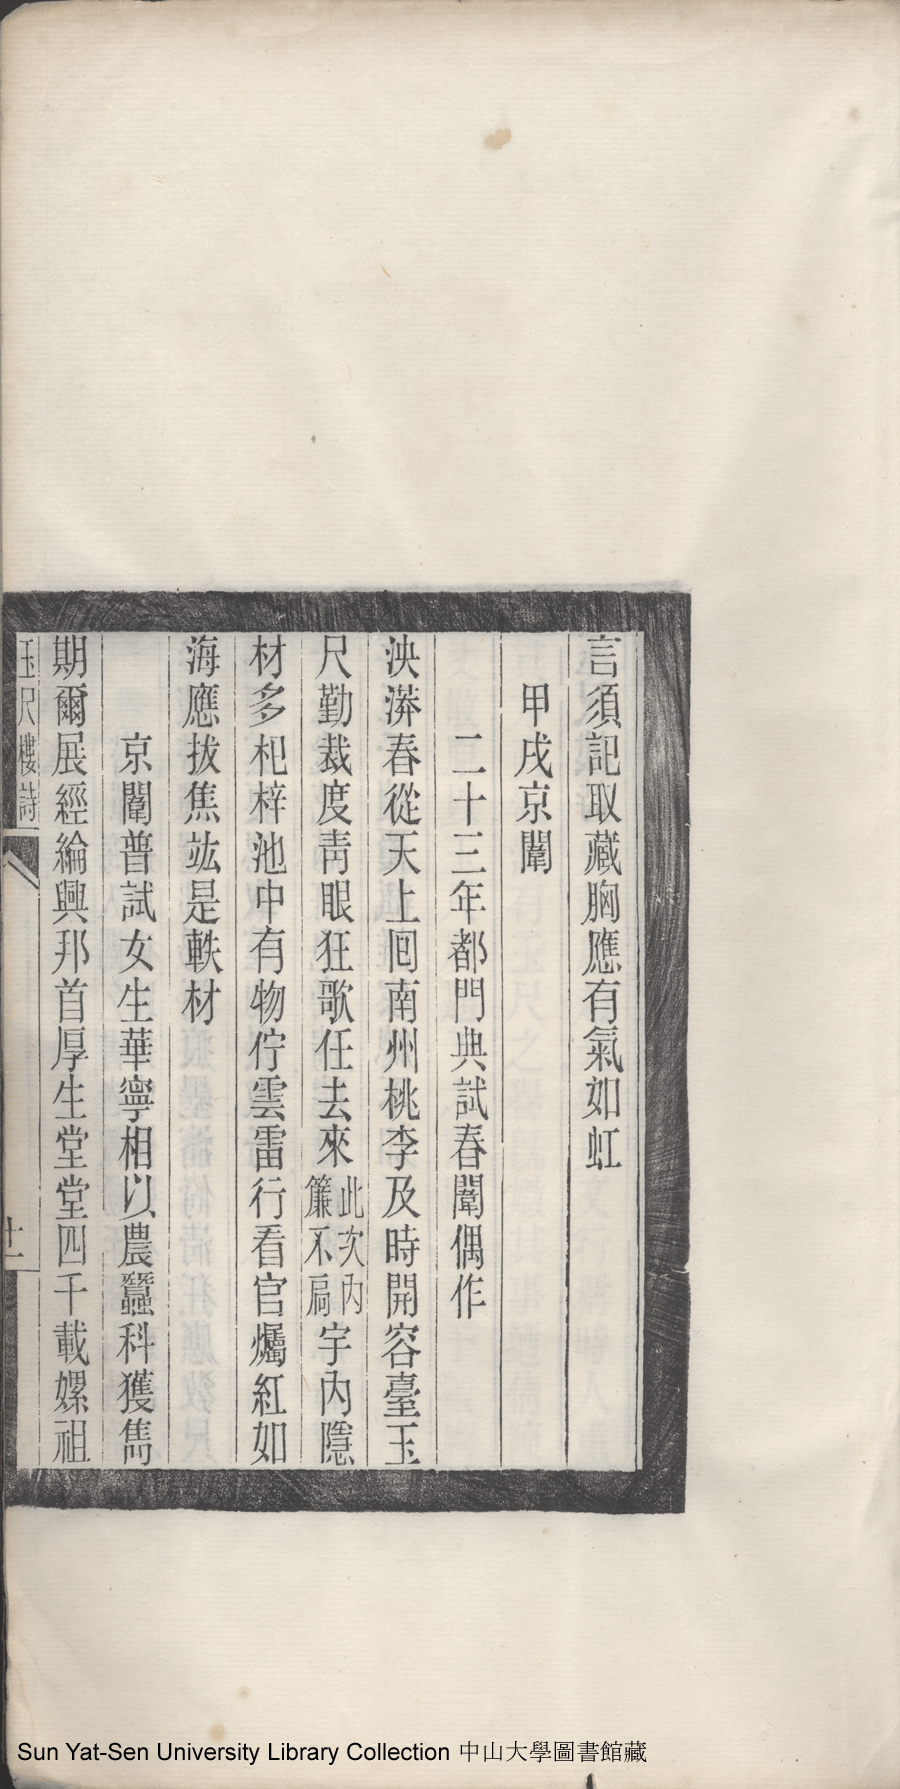 言須記取藏胸應有氣如虹
甲戌京闈
二十三年都門典試春闈偶作
泱漭春從天上囘南州桃李及時開容臺玉
尺勤裁度靑眼狂歌任去來此次內簾不扃宇內隱
材多杞梓池中有物佇雲雷行看官爥紅如
海應拔焦竑是軼材
京闈普試女生華寧相以農蠶科獲雋
期爾展經綸興邦首厚生堂堂四千載嫘祖
玉尺樓詩
十一
Sun Yat-Sen University Library Collection 中山大學圖書館藏